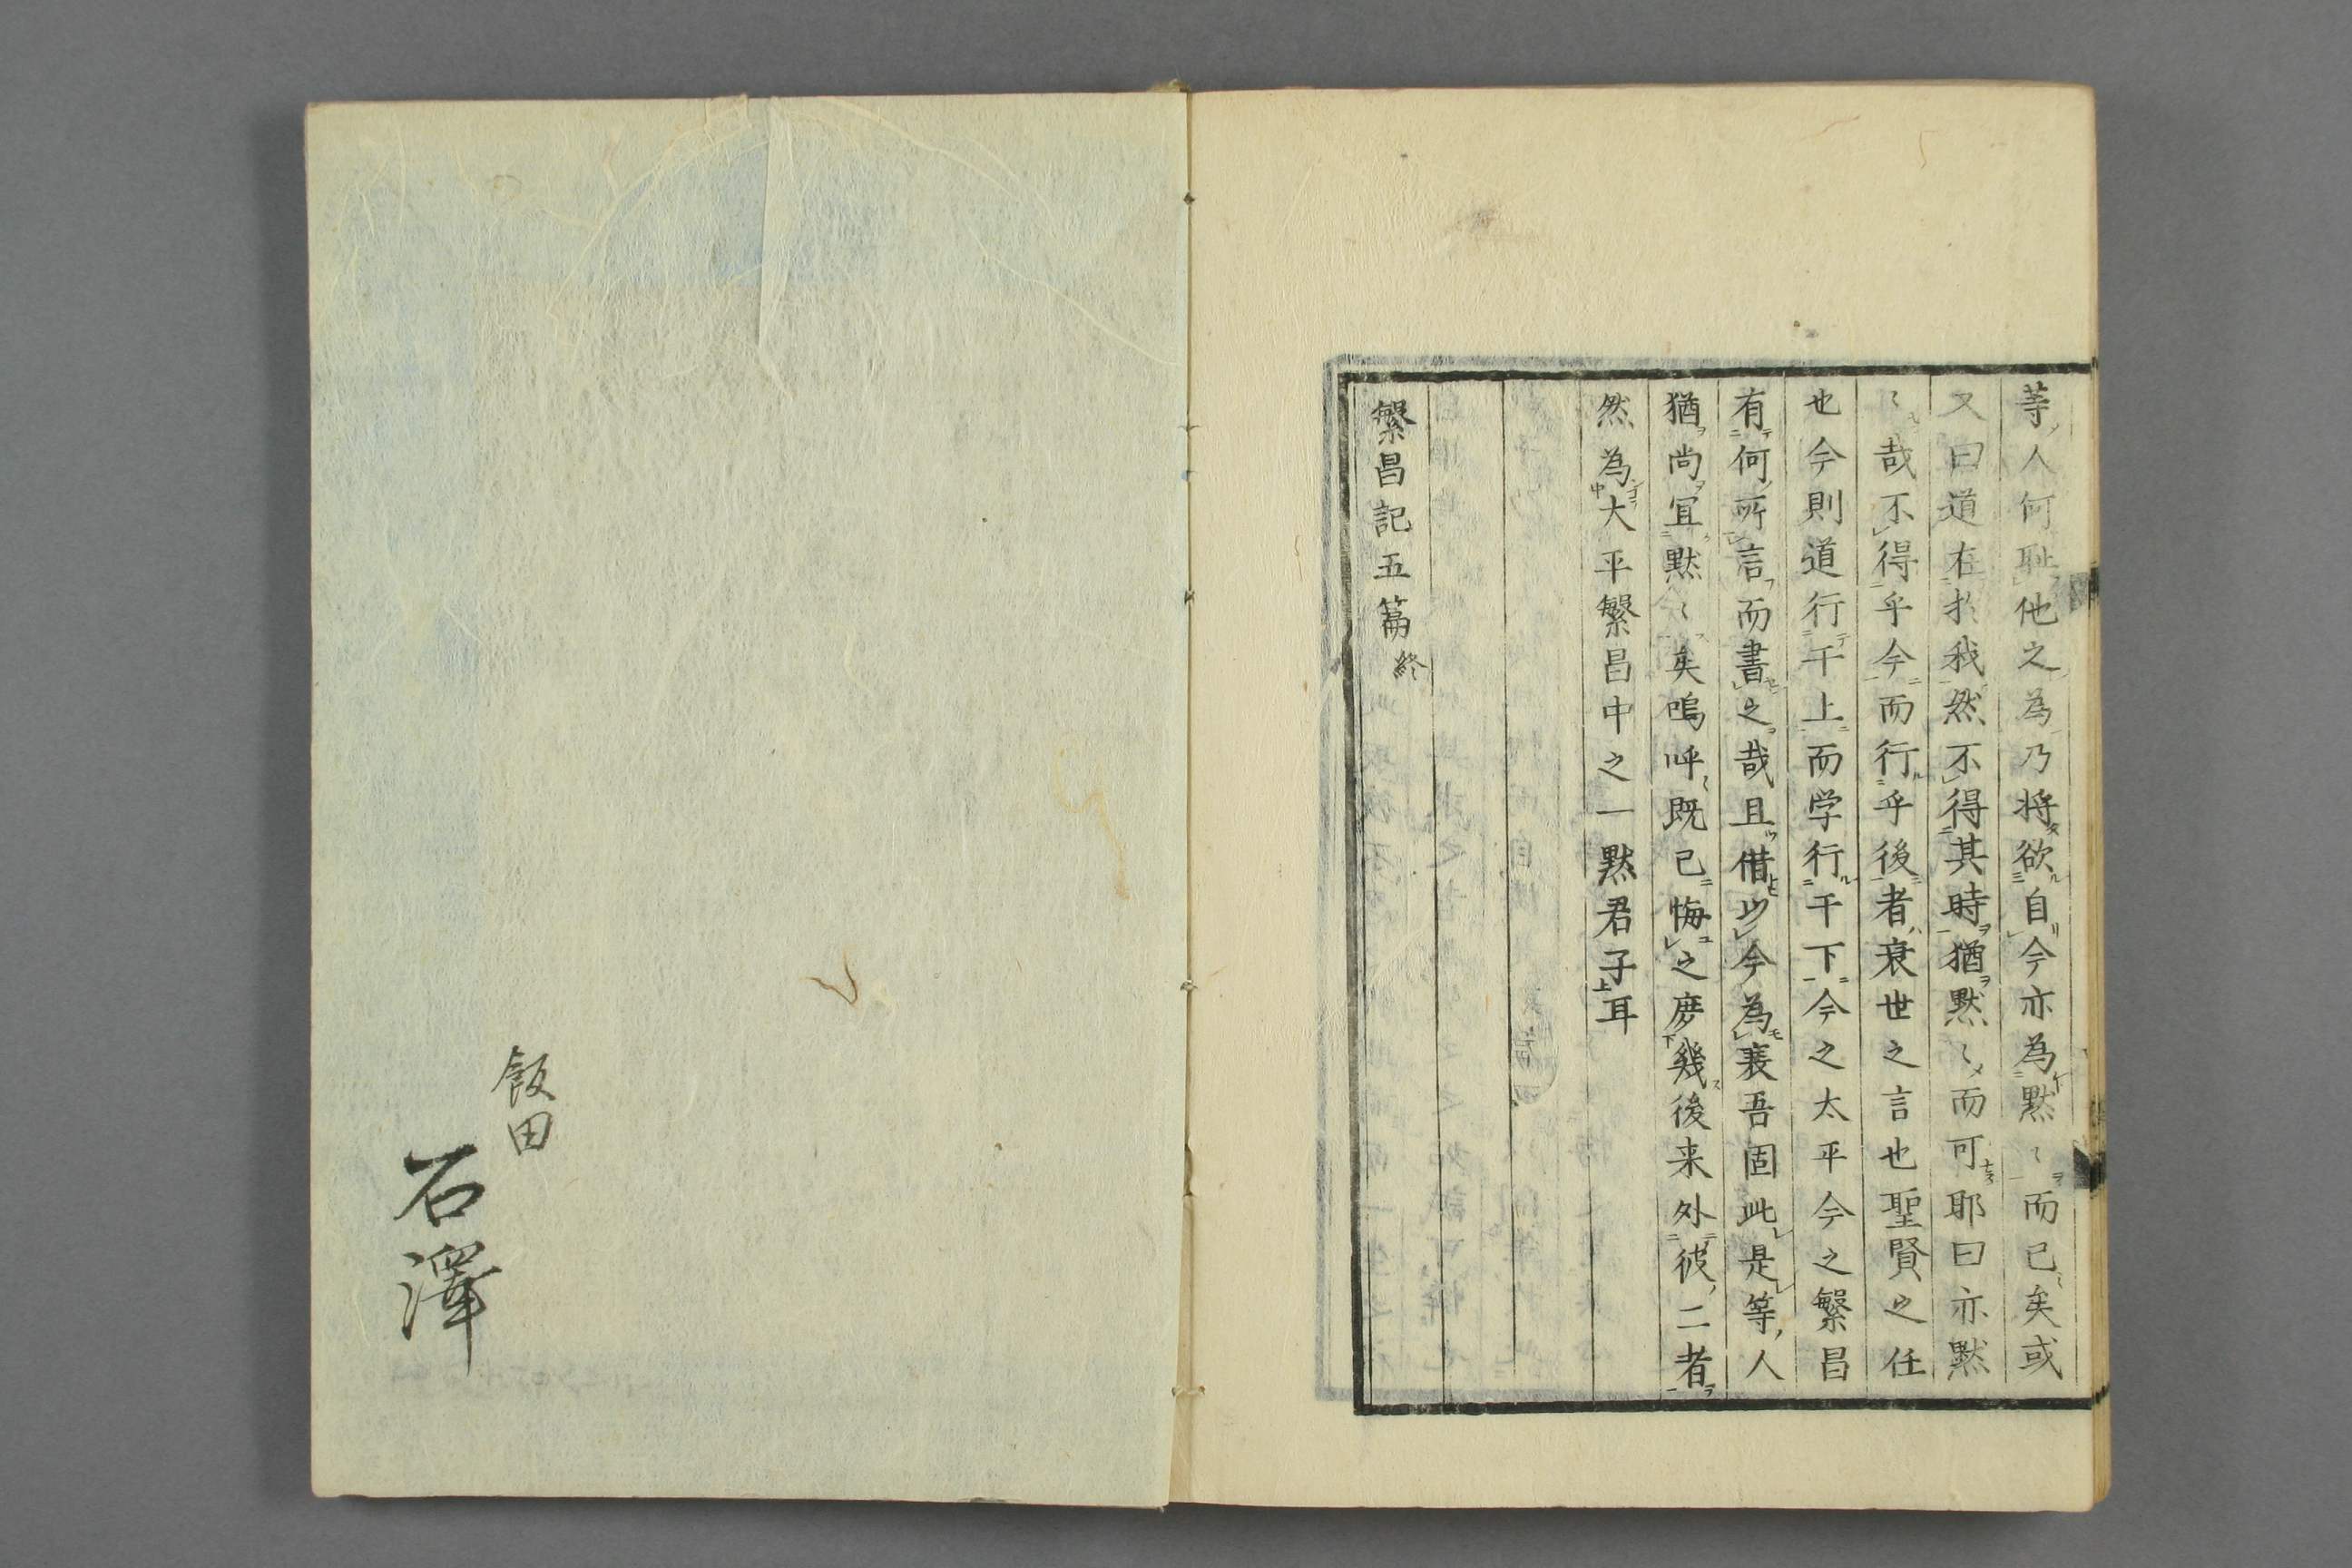 等人何耻他之為乃将欲自今亦為黙〻而已矣或
又曰道在於我然不得其時猶黙〻而可耶曰亦黙
〻哉不得乎今而行乎後者衰世之言也聖賢之任
也今則道行于上而学行于下今之太平今之繁昌
有何所言而書之哉且借以今為衰吾固此是等人
猶尚宜黙〻矣嗚呼既已悔之庶幾後来外彼二者
然為大平繁昌中之一黙君子耳
繁昌記五篇終
飯田
石澤